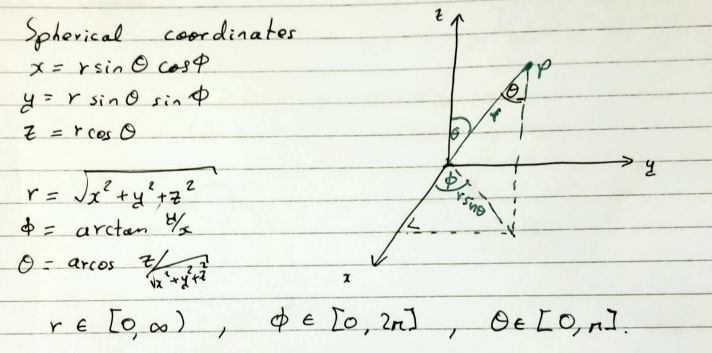 Spherical coordinates
x = r sin θ cos ϕ
y = r sin θ sin ϕ
z = r cos θ
r = √x²+y²+z²
ϕ = arctan y/x
θ = arcos z/√x²+y²+z²
r ∈ [0, ∞) , ϕ ∈ [0, 2π] , θ ∈ [0, π].
z
P
θ
r
θ
y
ϕ
r sinθ
x